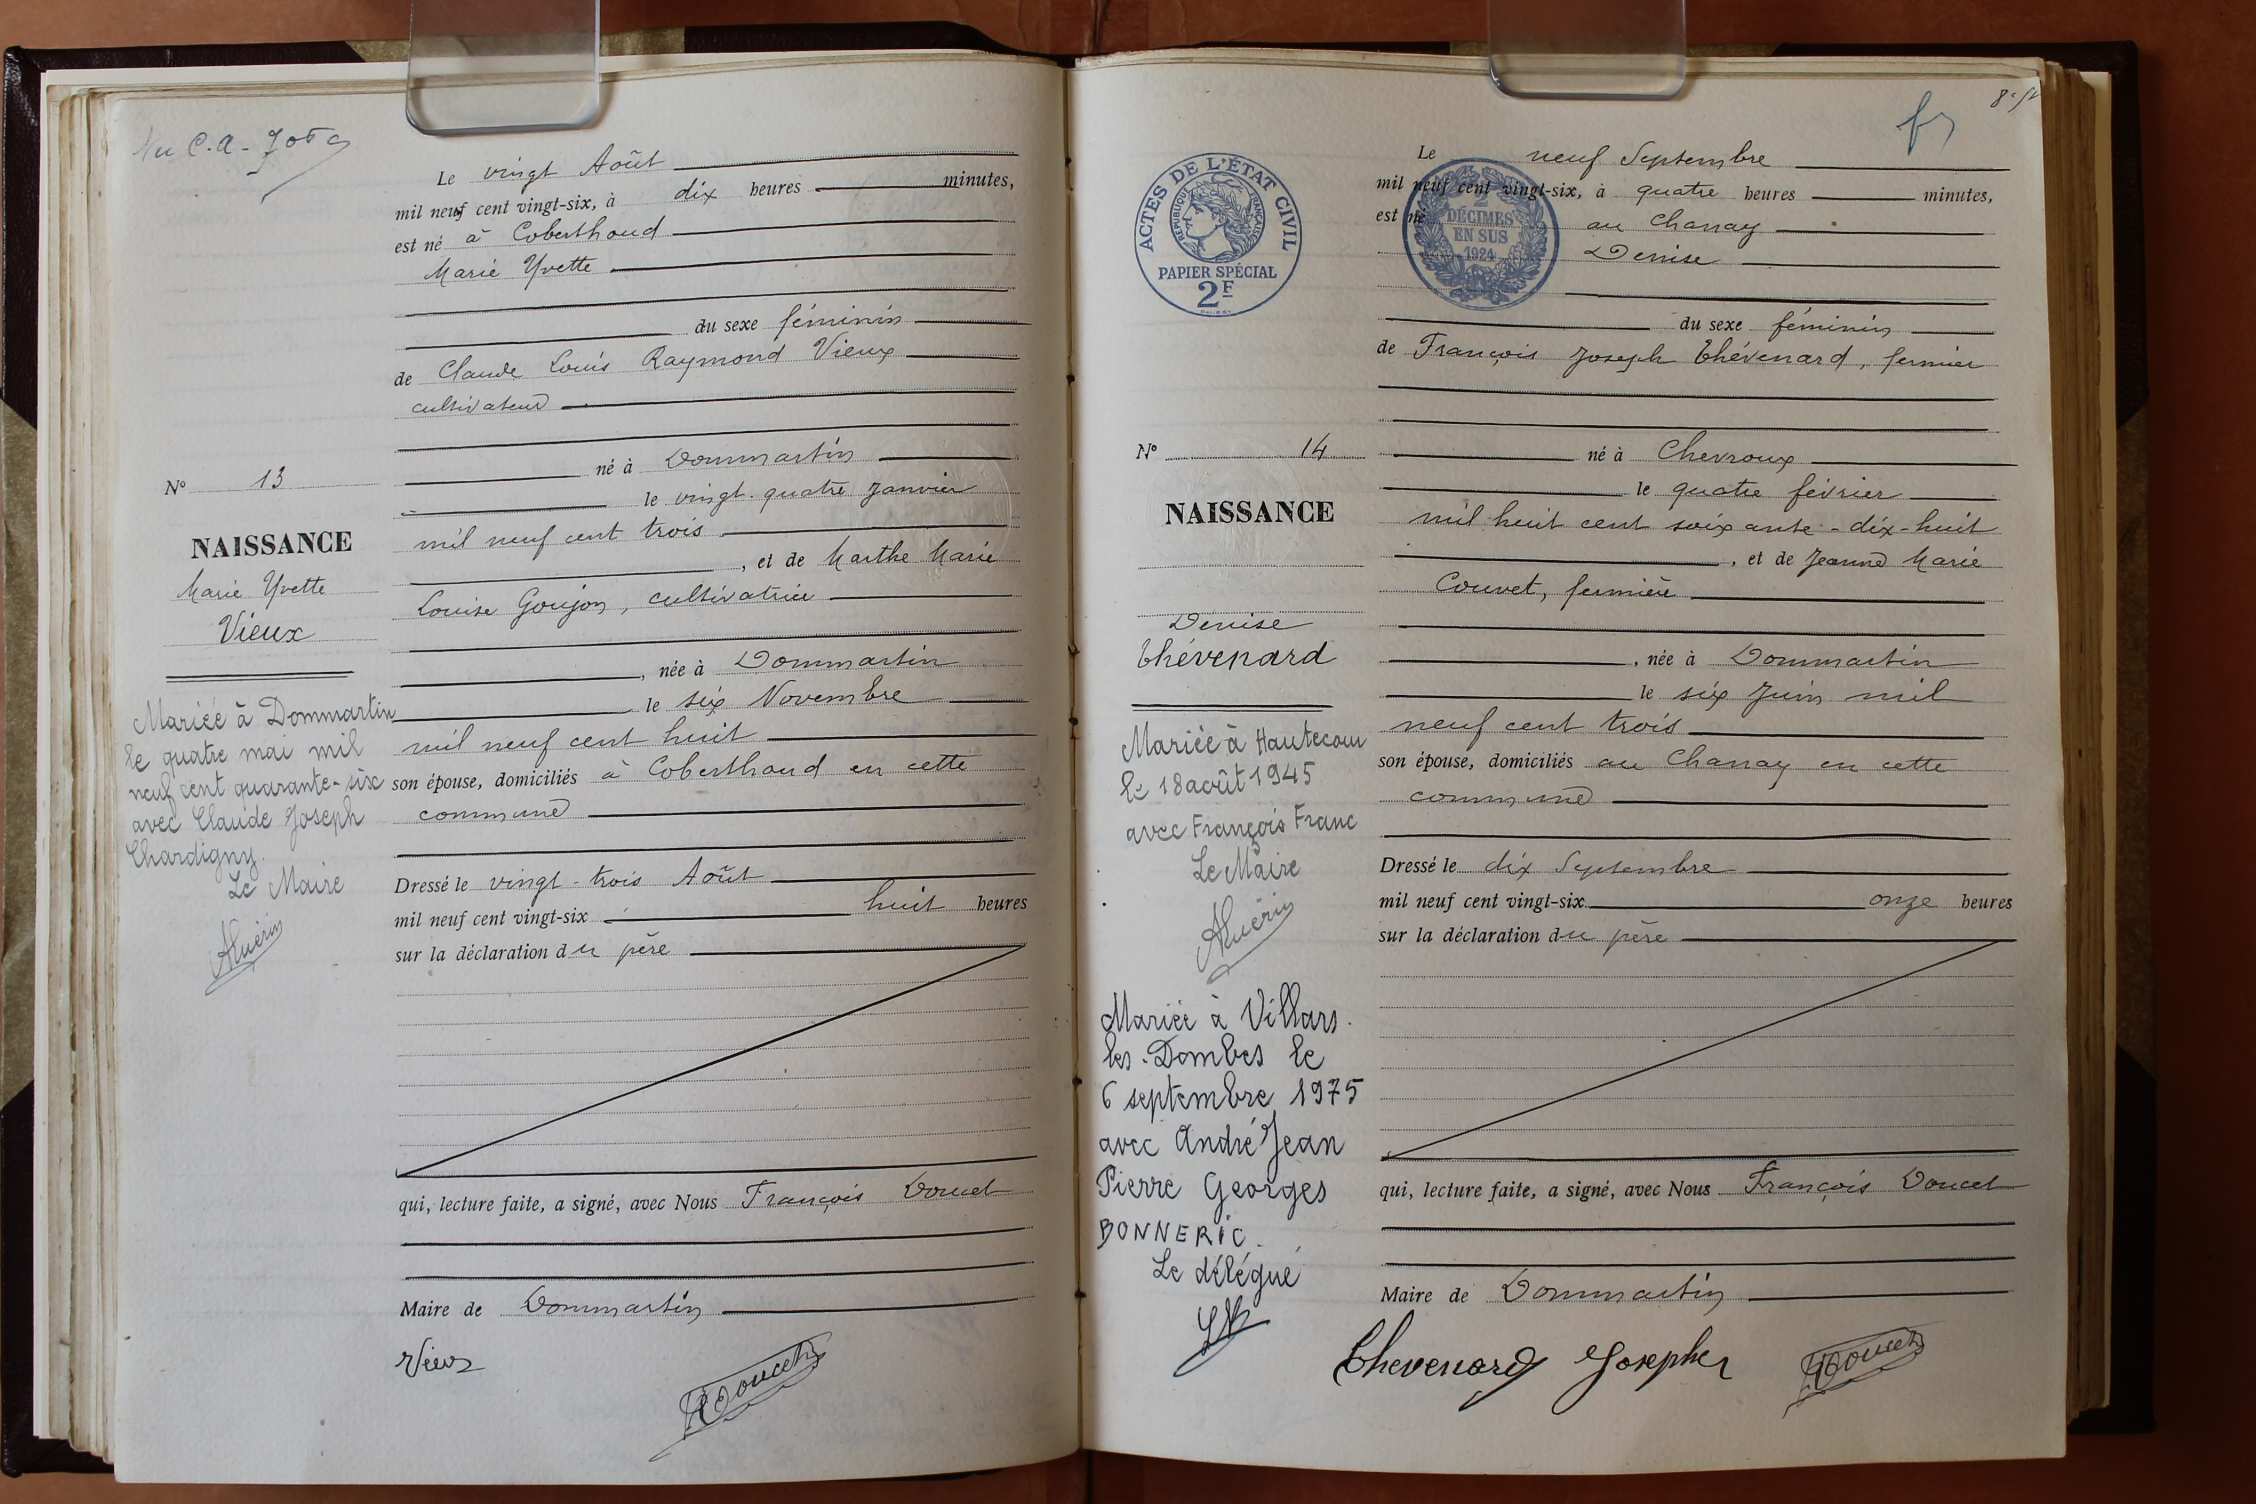 Vu C.A.
Le vingt Août
mil neuf cent vingt-six, à dix heures minutes,
est né à Coberthoud
Marie Yvette
du sexe féminin
de Claude Louis Raymond Vieux
cultivateur
né à Dommartin
le vingt-quatre Janvier
mil neuf cent trois
, et de Marthe Marie
Louise Goujon, cultivatrice
, née à Dommartin
le six Novembre
mil neuf cent huit
son épouse, domiciliés à Coberthoud en cette
commune
Dressé le vingt-trois Août
mil neuf cent vingt-six huit heures
sur la déclaration du père
qui, lecture faite, a signé, avec Nous François Doucet
Maire de Dommartin
Vieux
Doucet
N° 13
NAISSANCE
Marie Yvette
Vieux
Mariée à Dommartin
le quatre mai mil
neuf cent quarante-six
avec Claude Joseph
Chardigny.
Le Maire
AGuérin
ACTES DE L'ÉTAT CIVIL
RÉPUBLIQUE FRANÇAISE
PAPIER SPÉCIAL
2F
2
DÉCIMES
EN SUS
1924
Le neuf Septembre
mil neuf cent vingt-six, à quatre heures minutes,
est né au Chanay
Denise
du sexe féminin
de François Joseph Thévenard, fermier
né à Chevroux
le quatre février
mil huit cent soixante-dix-huit
, et de Jeanne Marie
Couvet, fermière
, née à Dommartin
le six Juin mil
neuf cent trois
son épouse, domiciliés au Chanay en cette
commune
Dressé le dix Septembre
mil neuf cent vingt-six onze heures
sur la déclaration du père
qui, lecture faite, a signé, avec Nous François Doucet
Maire de Dommartin
Thevenard Joseph
Doucet
N° 14
NAISSANCE
Denise
Thévenard
Mariée à Hautecour
le 18 août 1945
avec François Franc
Le Maire
AGuérin
Mariée à Villars
les-Dombes le
6 septembre 1975
avec André Jean
Pierre Georges
BONNERIC.
Le délégué